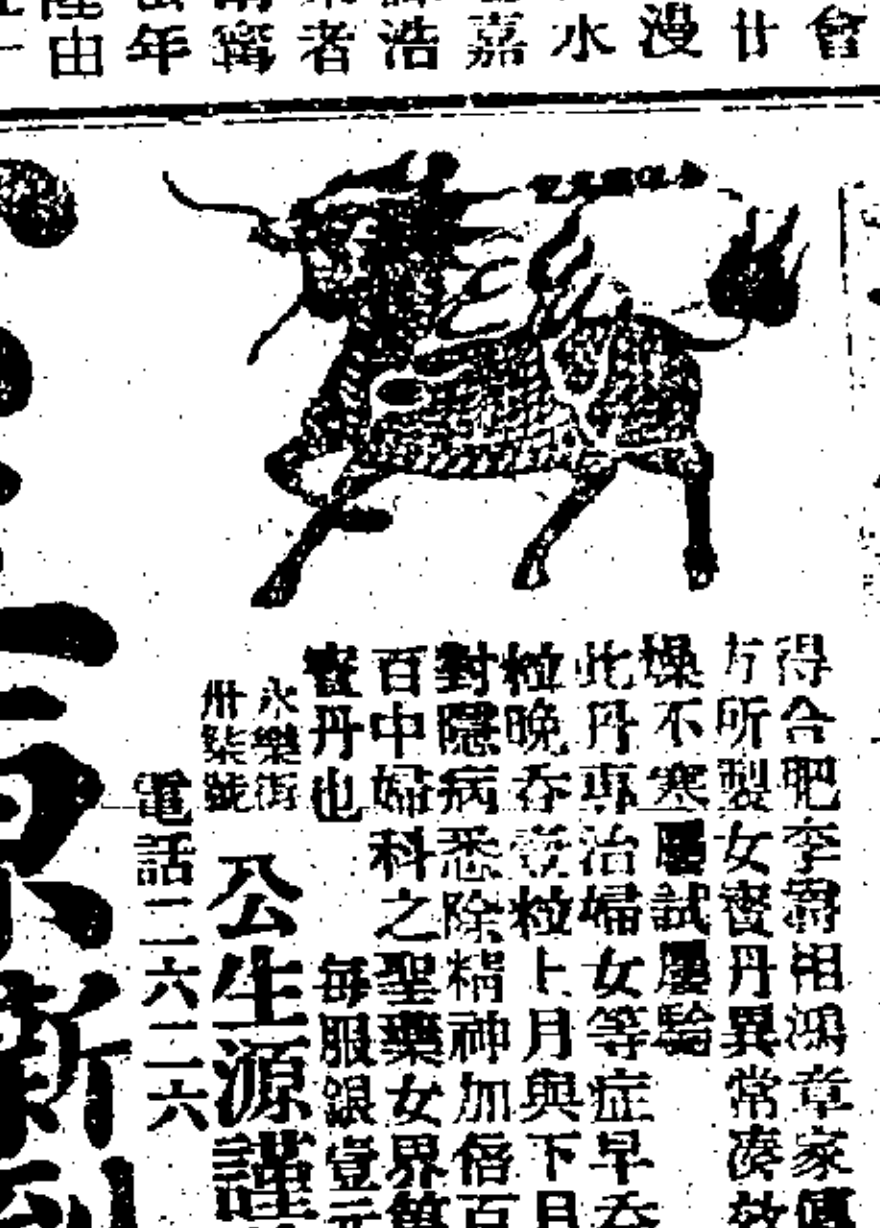 會
廿
漫
水
嘉
浩
者
甯
年
由
得合肥李爵相鴻章家傳
方所製女寳丹異常湊效
燥不寒屢試屢驗
此丹專治婦女等症早吞
粒晚吞壹粒上月與下月
對隱病悉除精神加倍百
百中婦科之聖藥女界
寳丹也 每服銀壹元
永樂街
卅柒號
公生源謹
電話二六二六
新到